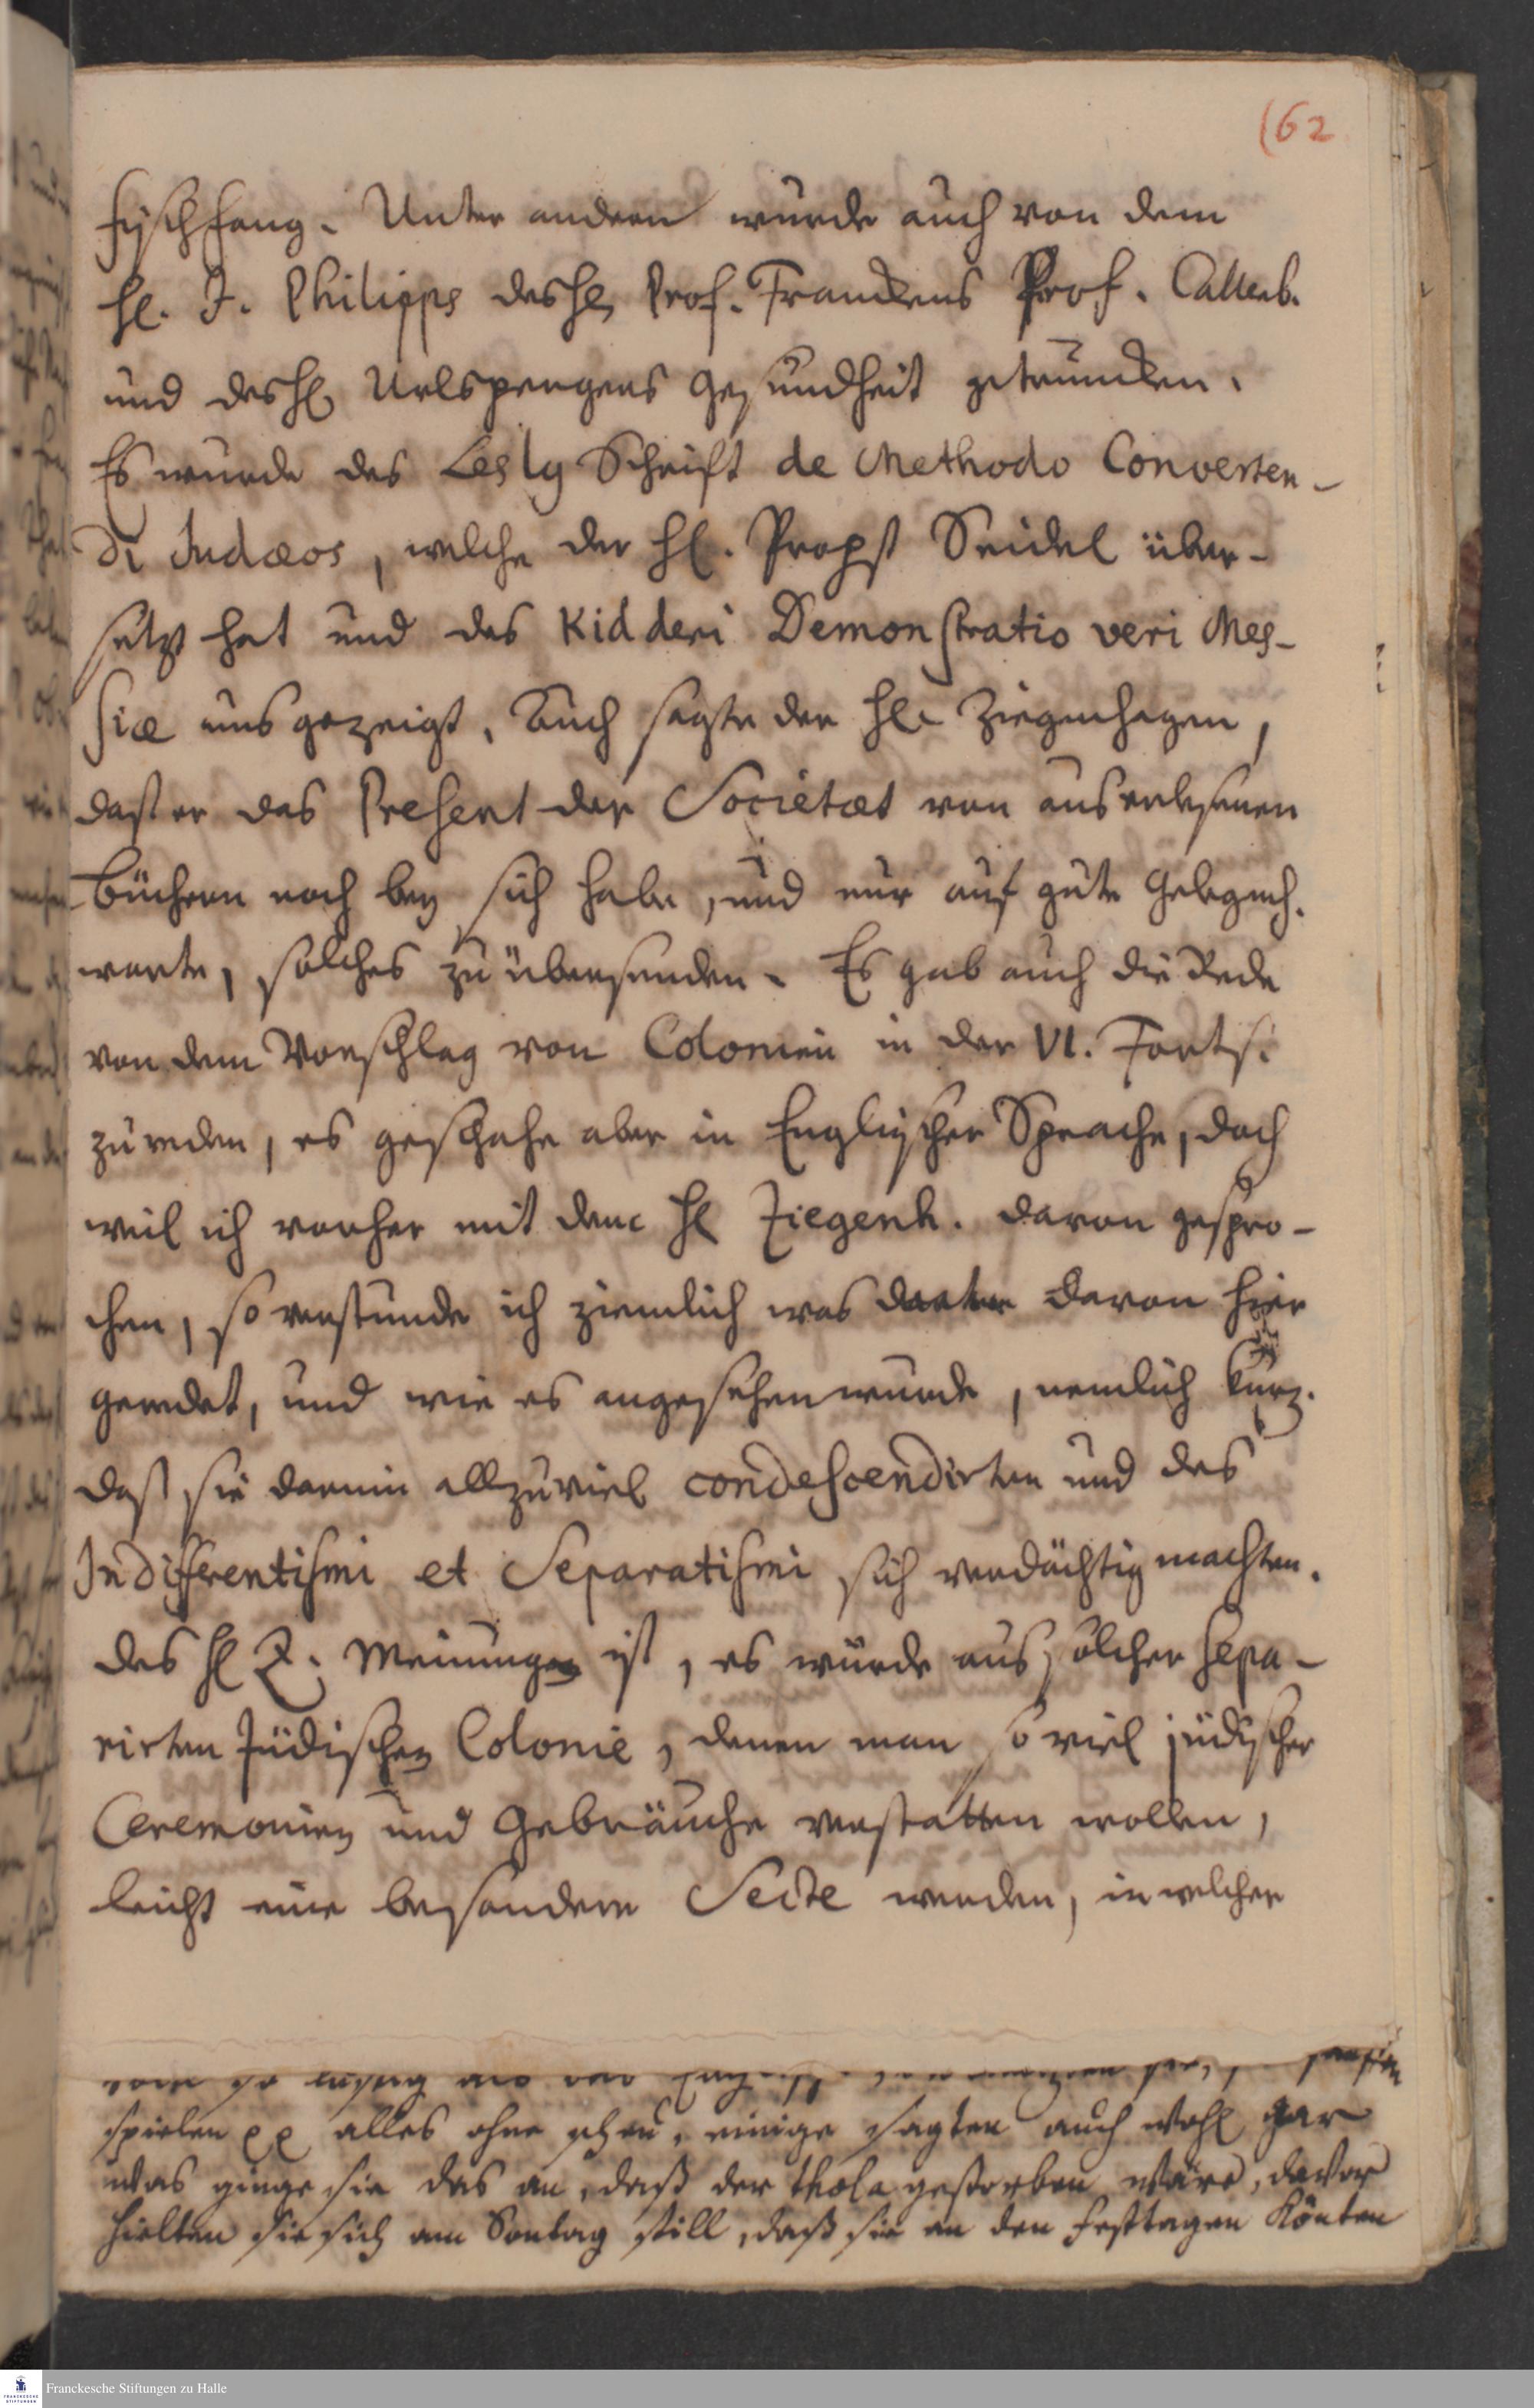 (62
fischfang. Unter andern wurde auch von dem
Hl. J. Philipps des Hl. Prof. Franckens Prof. Callenb.
und des Hl. Urlspergers Gesundheit getruncken.
Es wurde des Lesly Schrift de Methodo Converten-
di Judæos, welche der Hl. Propst Seidel über-
setzt hat und des Kidderi Demonstratio veri Mes-
siæ uns gezeigt. Auch sagte der Hl. Ziegenhagen,
daß er das Present der Societæt von auserlesenen
Büchern noch bey sich habe, und nur auf gute Gelegenh.
warte, solches zu übersenden. Es gab auch die Rede
von dem Vorschlag von Colonien in der VI. Forts.
zu reden, es geschahe aber in Englischer Sprache, doch
weil ich vorher mit dem Hl Ziegenh. davon gespro-
chen, so verstunde ich ziemlich was davon hier
geredet, und wie es angesehen wurde, nemlich kurz.
daß sie darinn allzuviel condescendirten und des
Indifferentismi et Separatismi sich verdächtig machten.
Des Hl Z. Meinung ist, es würde aus solcher sepa-
rirten Jüdischen Colonie, denen man so viel jüdischer
Ceremonien und Gebräuche verstatten wollen,
leicht eine besondere Secte werden, in welcher
spielen alles ohne scheu, einige sagten auch wohl gar
was ginge sie das an, daß der thola gestorben wäre, davor
hielten sie sich am Sontag still, daß sie an den Festtagen könten
Franckesche Stiftungen zu Halle